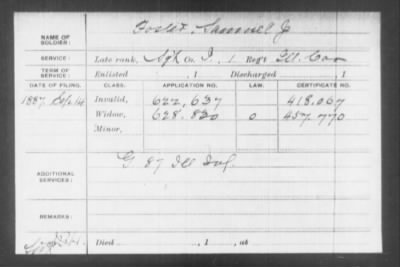 NAME OF SOLDIER: Foster, Samuel J
SERVICE: Late rank, Sgt Co. I, 1 Reg't Ill. Cav
TERM OF SERVICE: Enlisted , 1 Discharged , 1
DATE OF FILING. CLASS. APPLICATION NO. LAW. CERTIFICATE NO.
1887. Sep. 14 Invalid, 622,637 418.067
Widow, 628.820 0 457.770
Minor,
ADDITIONAL SERVICES: G 87 Ill Inf.
REMARKS:
Died , 1 , at